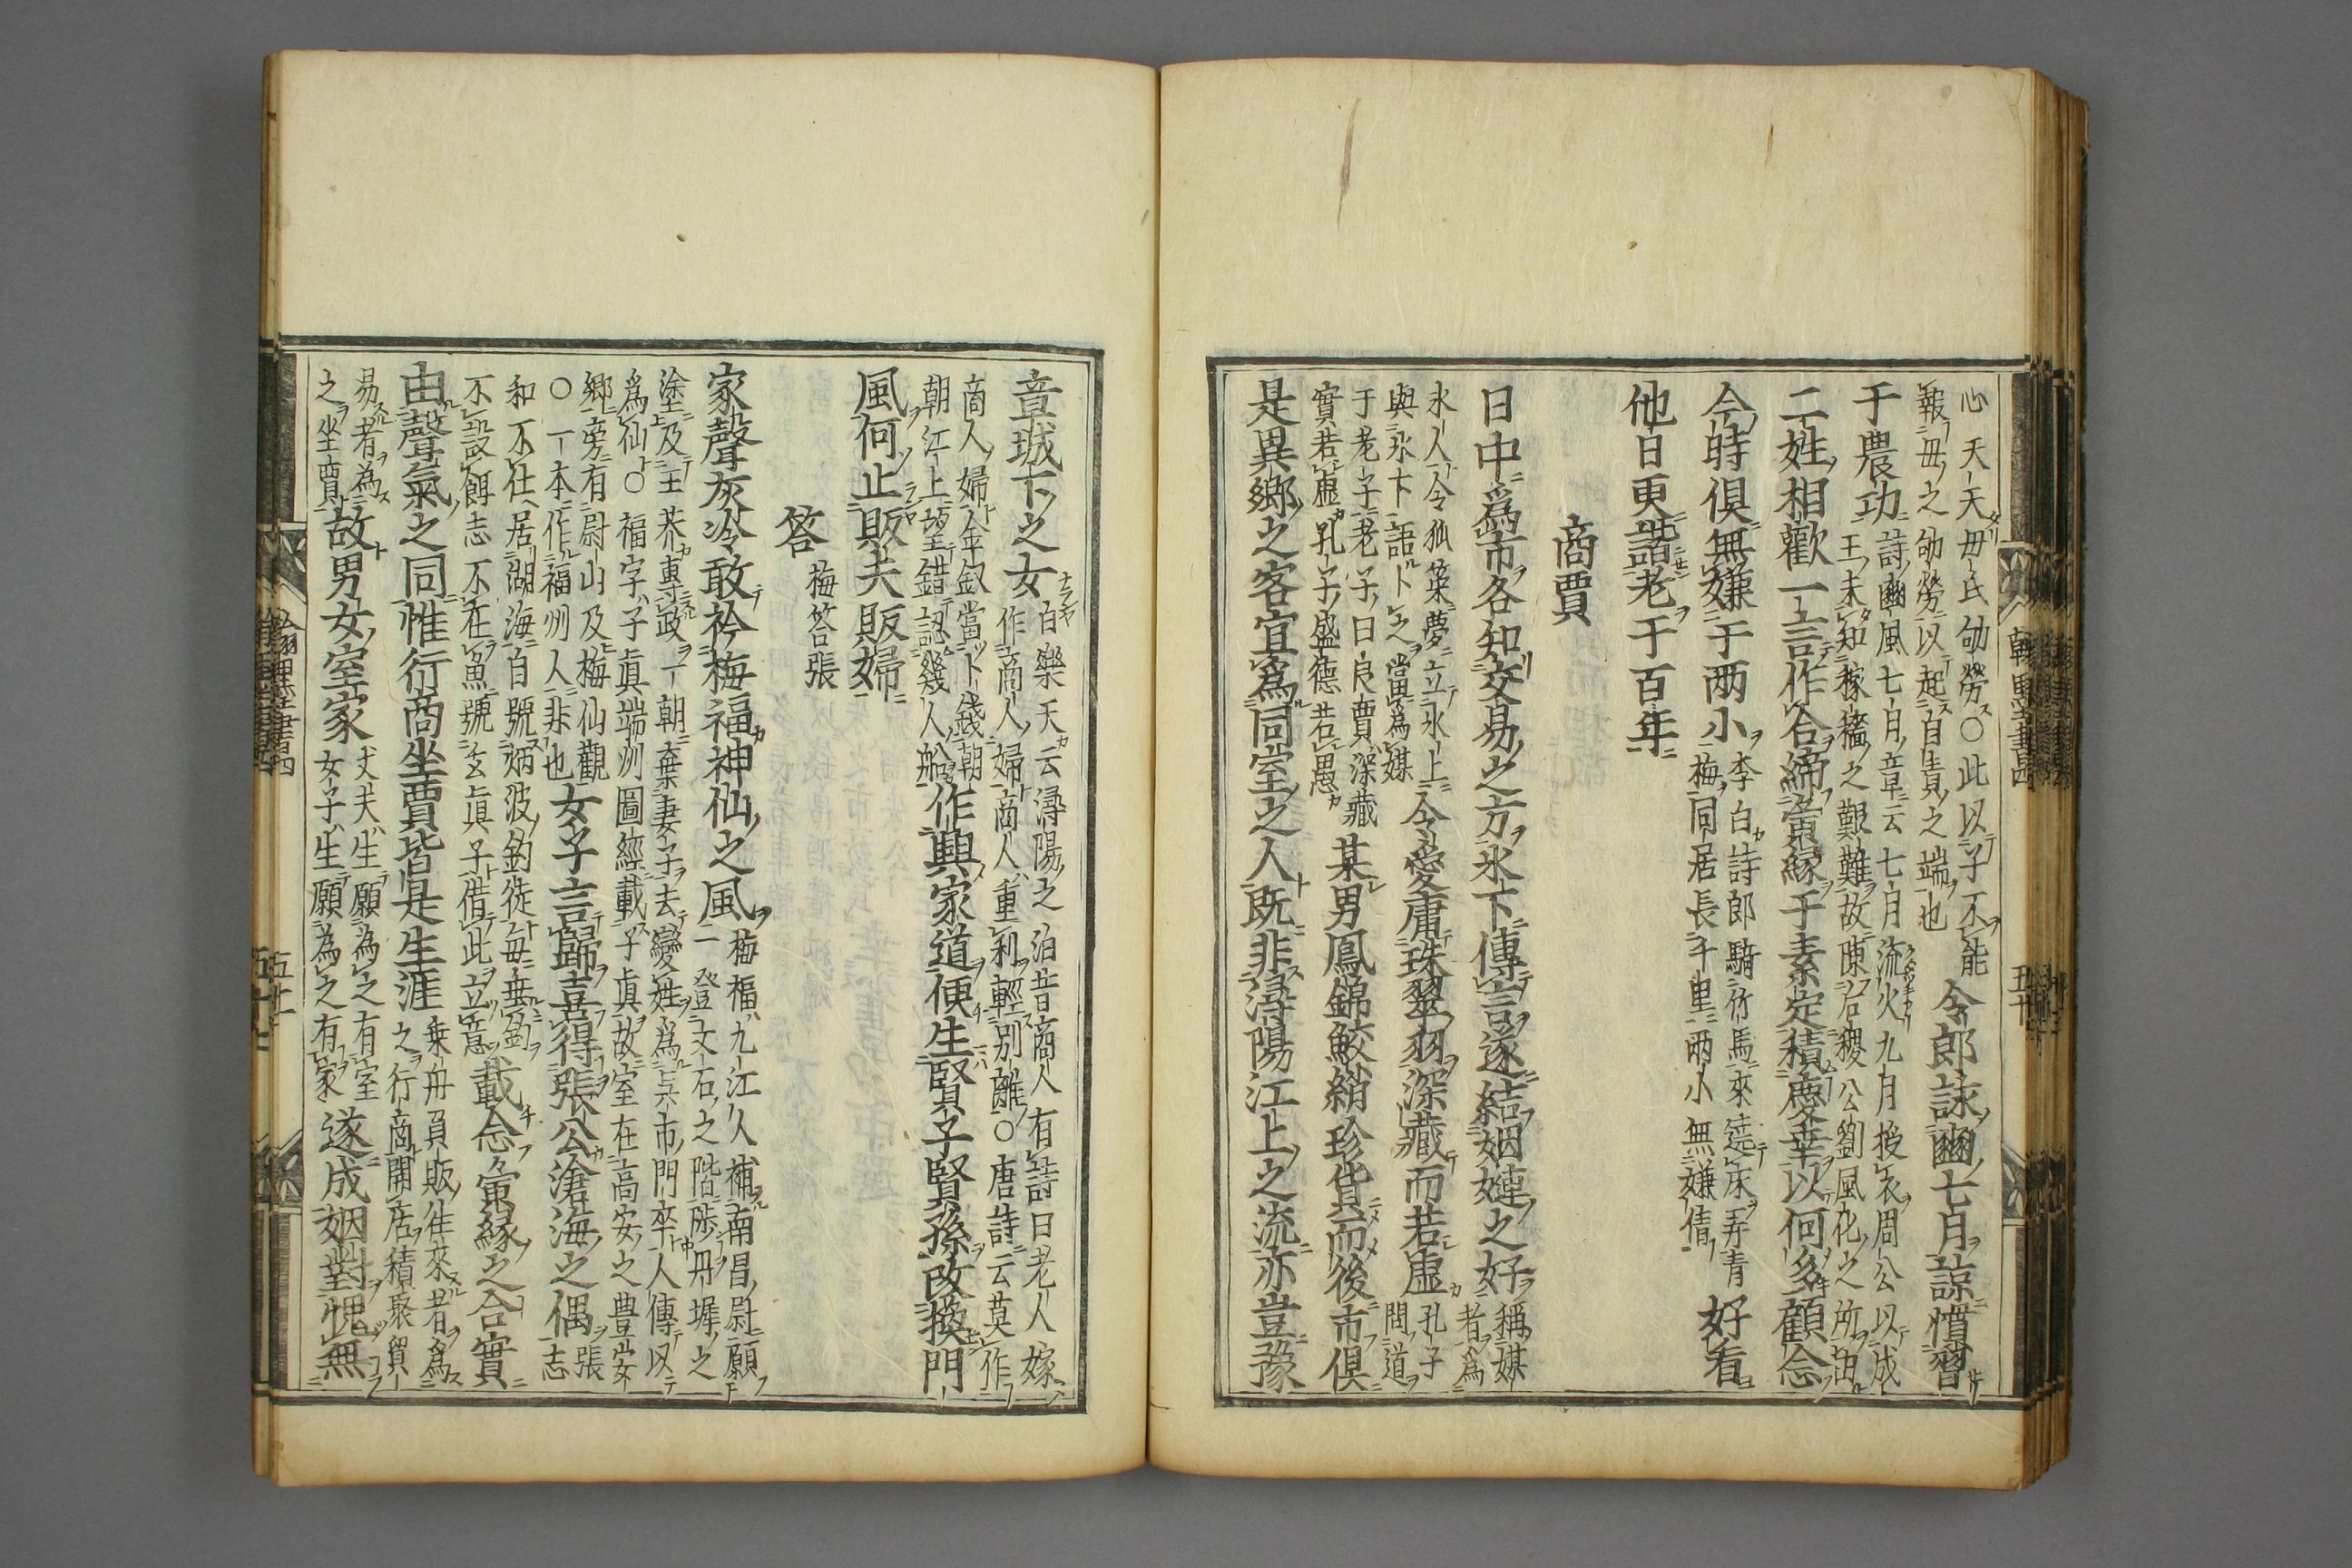 心天天毋氏劬勞〇此以子不能
報毋之劬勞以起自責之端也
令郎詠豳七月諒慣習
于農功
詩豳風七月章云七月流火九月授衣周公以成
王未知稼穡之艱難故陳后稷公劉風化之所由
二姓相歡一言作合締夤緣于素定積慶幸以何多顧念
今時俱無嫌于两小
李白詩郎騎竹馬來遶床弄青
梅同居長干里兩小無嫌猜
好看
他日更諧老于百年
商賈
日中爲市各知交易之方氷下傳言遂結姻之好
稱媒
者為
氷人令狐策夢立氷上
與氷下語卜之當為媒
令愛庸珠翠羽深藏而若虛
孔子
問道
于老子老子曰良賈深藏
實若虛孔子盛德若愚
某男鳳錦鮫綃珍貨而後市俱
是異鄉之客宜爲同堂之人既非潯陽江上之流亦豈豫
章城下之女
白樂天云潯陽之泊昔商人有詩曰老人嫁
作商人婦商人重利輕別離〇唐詩云莫作
商人婦金釵當卜錢朝
朝江上望錯認幾人船
作興家道便生賢子賢孫改換門
風何止販夫販婦
答
梅答張
家聲灰冷敢衿梅福神仙之風
梅福九江人補南昌尉願
一登文石之階陟丹墀之
塗及王莽專政一朝棄妻子去變姓為吳市門卒人傳以
為仙〇福字子眞端洲圖經載子眞故室在高安之豊樂
鄉旁有尉山及梅仙觀
〇一本作福州人非也
女子言歸喜得張公滄海之偶
張
志
和不仕居湖海自號烟波釣徒每垂釣
不設餌志不在魚號玄眞子借此立意
載念夤緣之合實
由聲氣之同惟行商坐賈皆是生涯
乗舟負販往來者為
之行商開店積聚貿
易者為
之坐賈
故男女室家
丈夫生願為之有室
女子生願為之有家
遂成姻對愧無